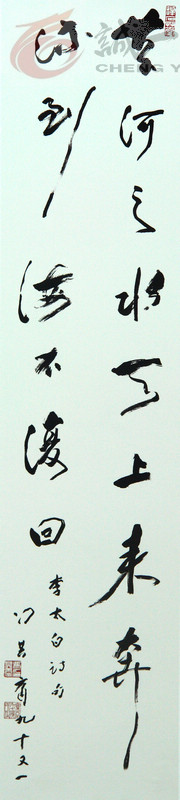 黄河之水天上来奔
流到海不復回
李太白诗句
冯其庸九十又一
誠
CHENG Y